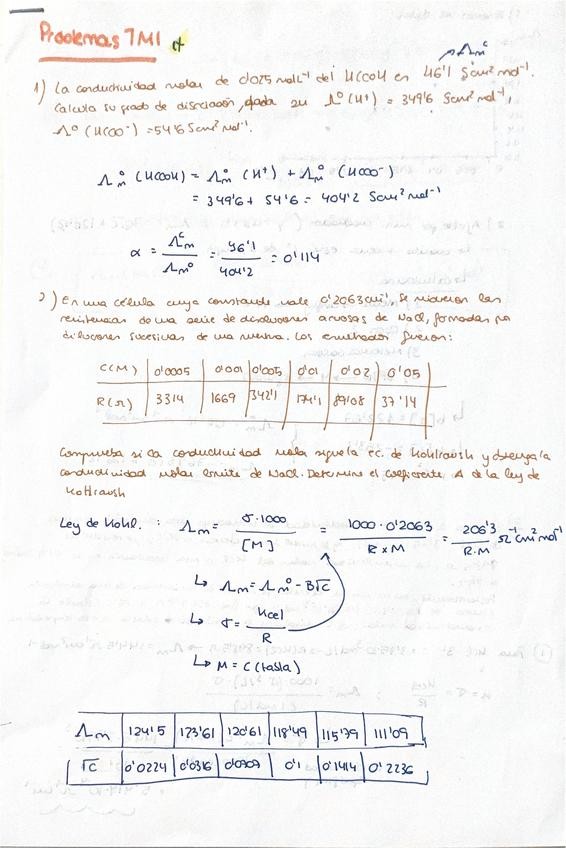 Problemas TM1
Λm^c
1) La conductividad molar de 0'025 mol L⁻¹ del HCOOH es 46'1 S cm² mol⁻¹.
Calcula su grado de disociación, dada su Λ⁰(H⁺) = 349'6 S cm² mol⁻¹,
Λ⁰(HCOO⁻) = 54'6 S cm² mol⁻¹.
Λm⁰ (HCOOH) = Λm⁰ (H⁺) + Λm⁰ (HCOO⁻)
= 349'6 + 54'6 = 404'2 S cm² mol⁻¹
α = Λm^c / Λm⁰ = 46'1 / 404'2 = 0'114
2) En una célula cuya constante vale 0'2063 cm⁻¹, se midieron las
resistencias de una serie de disoluciones acuosas de NaCl, formadas por
diluciones sucesivas de una muestra. Los resultados fueron:
C(M) 0'0005 0'001 0'005 0'01 0'02 0'05
R(Ω) 3314 1669 342'1 174'1 89'08 37'14
Comprueba si la conductividad molar sigue la ec. de Kohlraush y obtenga la
conductividad molar límite de NaCl. Determine el coeficiente A de la ley de
Kohlraush
Ley de Kohl. : Λm = σ·1000 / [M] = 1000·0'2063 / R×M = 206'3 / R·M Ω⁻¹ cm² mol⁻¹
↳ Λm = Λm⁰ - B√c
↳ σ = Kcel / R
↳ M = C (tabla)
Λm 124'5 123'61 120'61 118'49 115'79 111'09
√c 0'0224 0'0316 0'0707 0'1 0'1414 0'2236